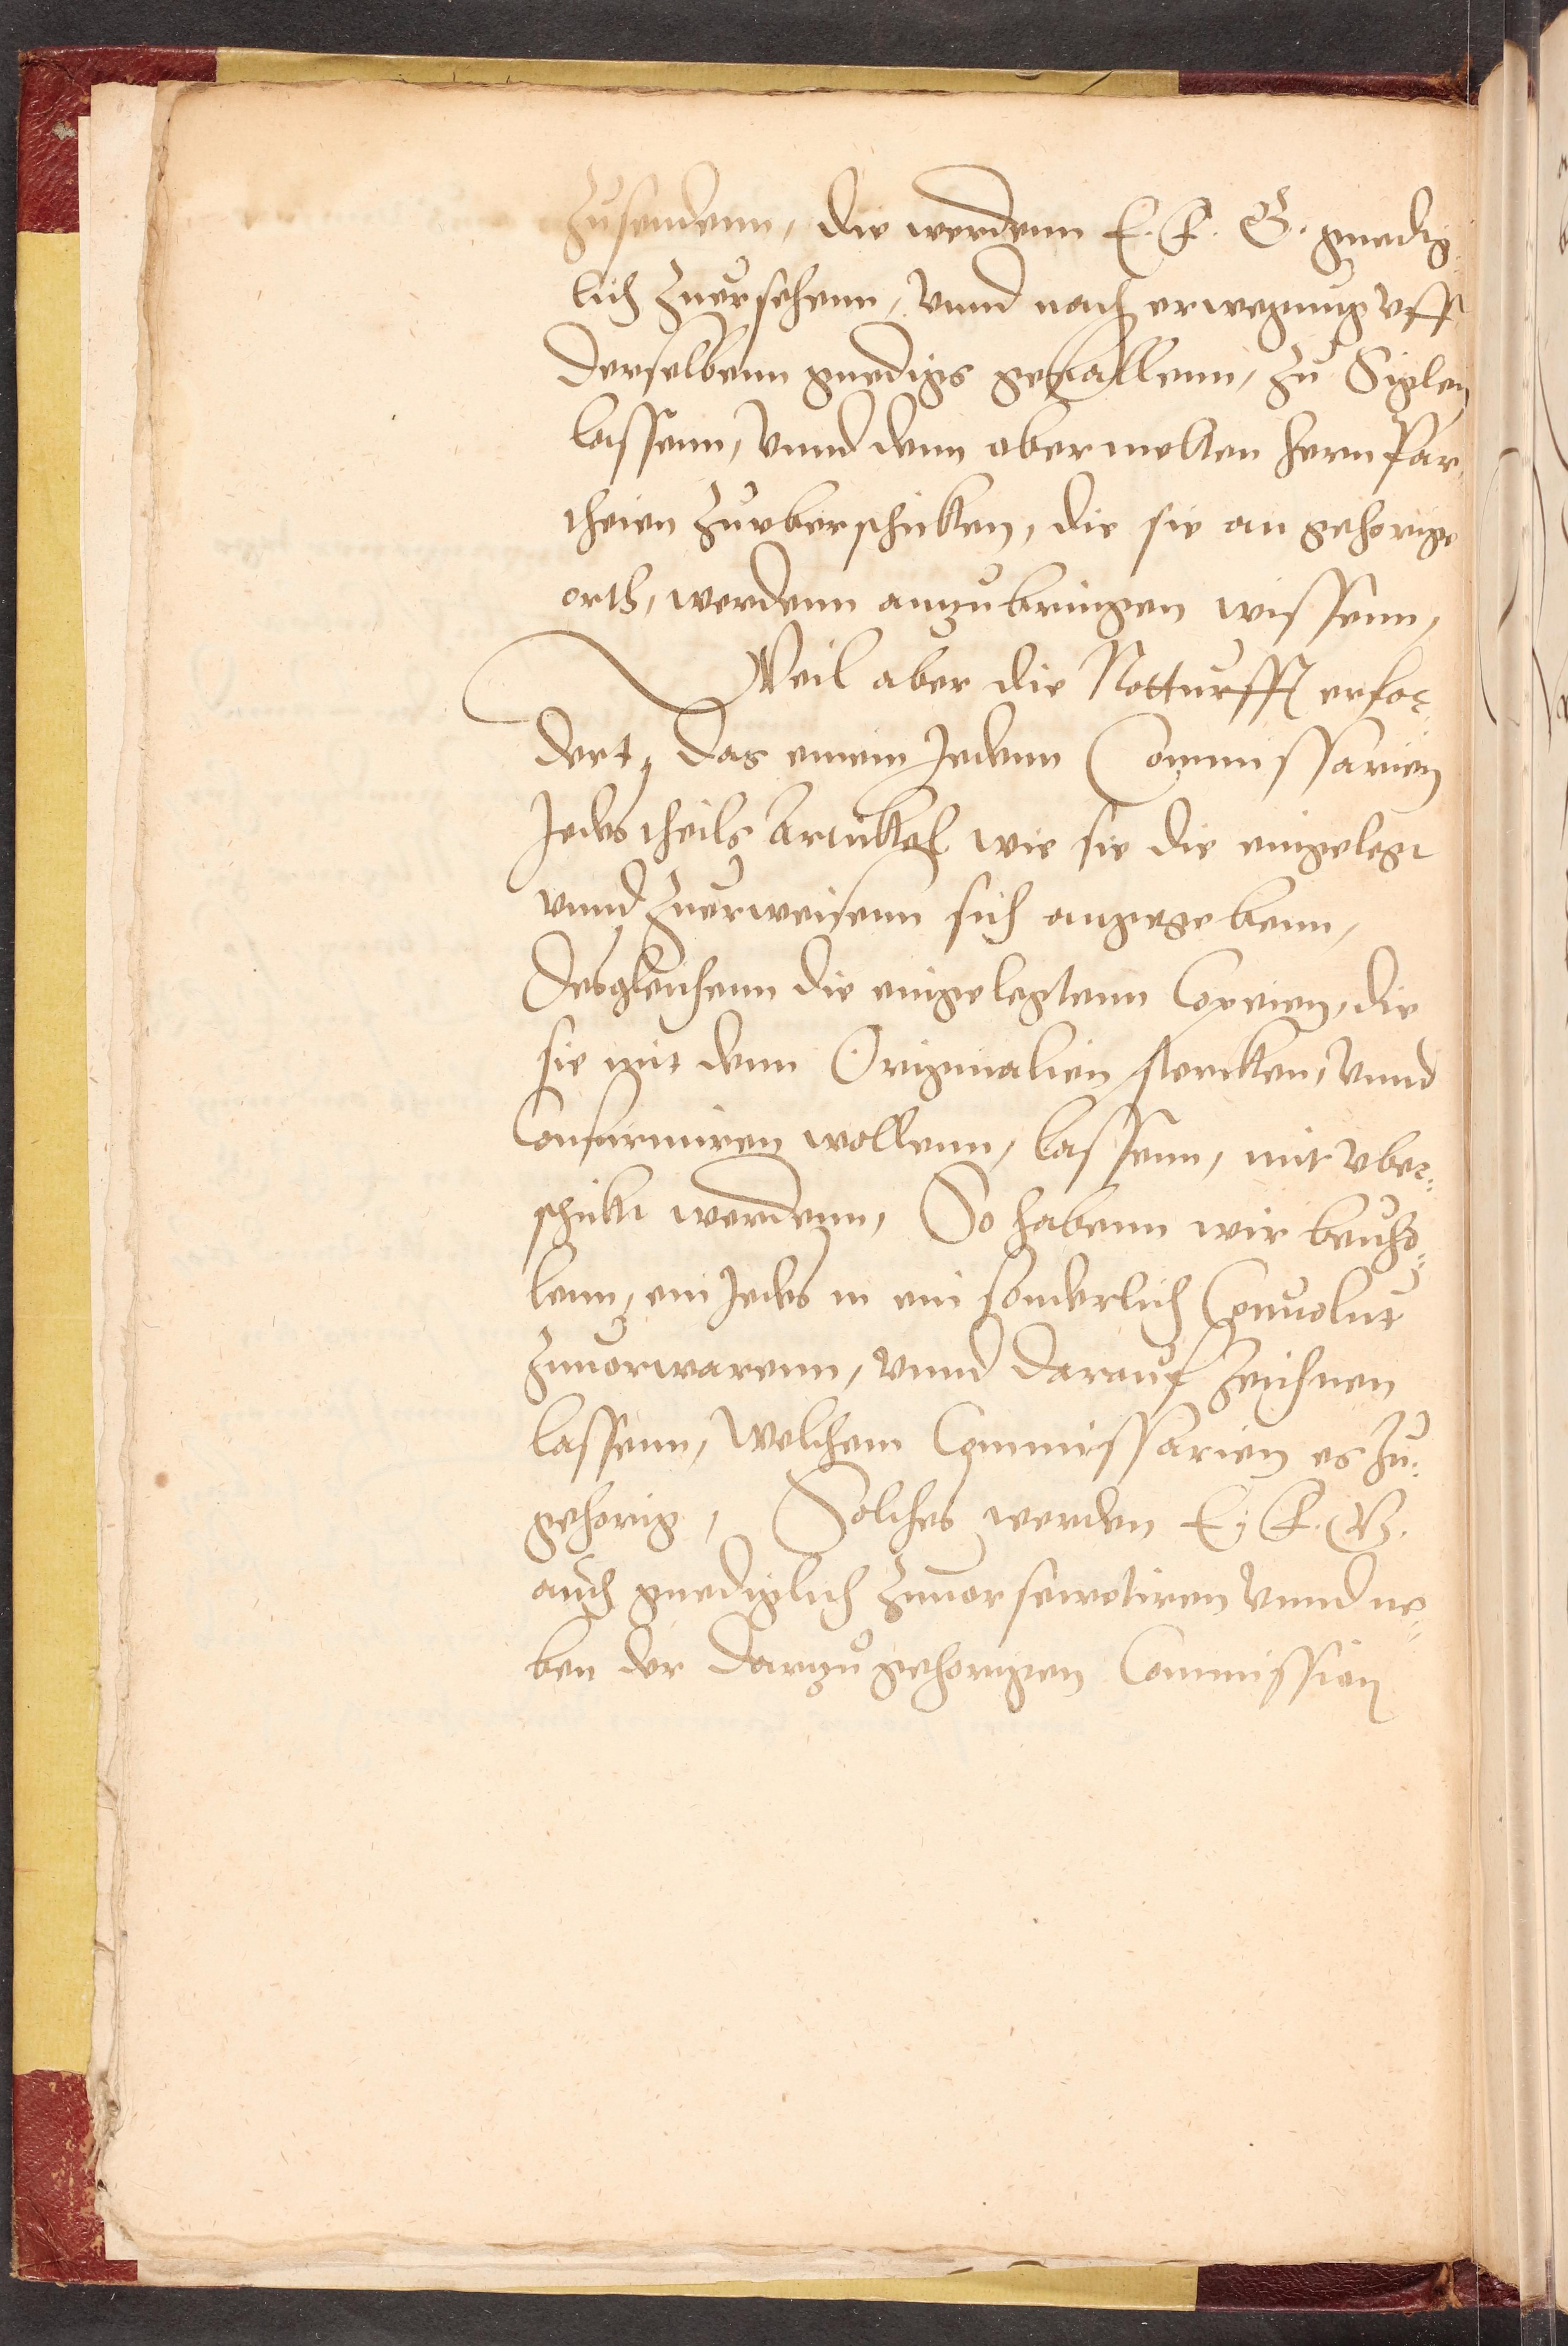 Zusendenn, die werdenn E. F. G. gnedig-
lich Zuersehenn, vnnd nach erwegung vff
derselbenn gnedigs gefallenn, zu Siglen
lassenn, Vnnd denn obermelten hern Par-
theien Zuvberschicken, die sie an gehorige
orth, werdenn anzubringen wissenn,
Weil aber die Notturfft erfor-
dert, das einem Jedenn Commissarien
Jedes theils Artickel wie sie die eingelegt
vnnd Zuerweisenn sich angegebenn,
Desgleichenn die eingelegtenn Copeien, die
sie mit denn Originalien stercken, vnnd
Confirmiren wollenn, lassenn, mit vber-
schickt werdenn, So habenn wir beuho-
lenn, ein Jedes in ein sonderlich Conuolut
Zuuorwarenn, vnnd darauf Zeichnen
lassenn, Welchem Commissarien es Zu-
gehorig, Solches werden E. F. G.
auch gnediglich Zuuor secretiren vnnd ne-
ben der darzu gehorigen Commission